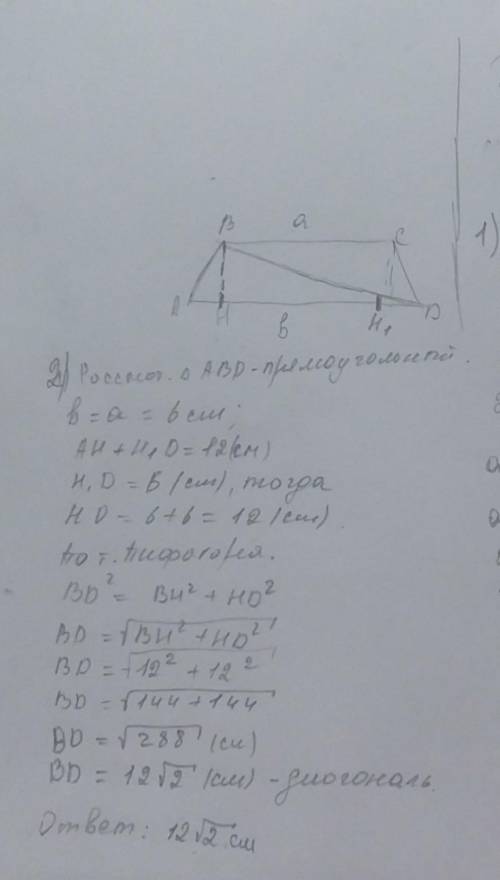 B a C
1)
A H b H₁ D
2) Рассмот. Δ ABD - прямоугольный.
b = a = 6 см;
AH + H₁D = 12 (см)
H₁D = 6 (см), тогда
HD = 6 + 6 = 12 (см)
По т. Пифагора.
BD² = BH² + HD²
BD = √BH² + HD²
BD = √12² + 12²
BD = √144 + 144
BD = √288 (см)
BD = 12√2 (см) - диогональ.
Ответ: 12√2 см